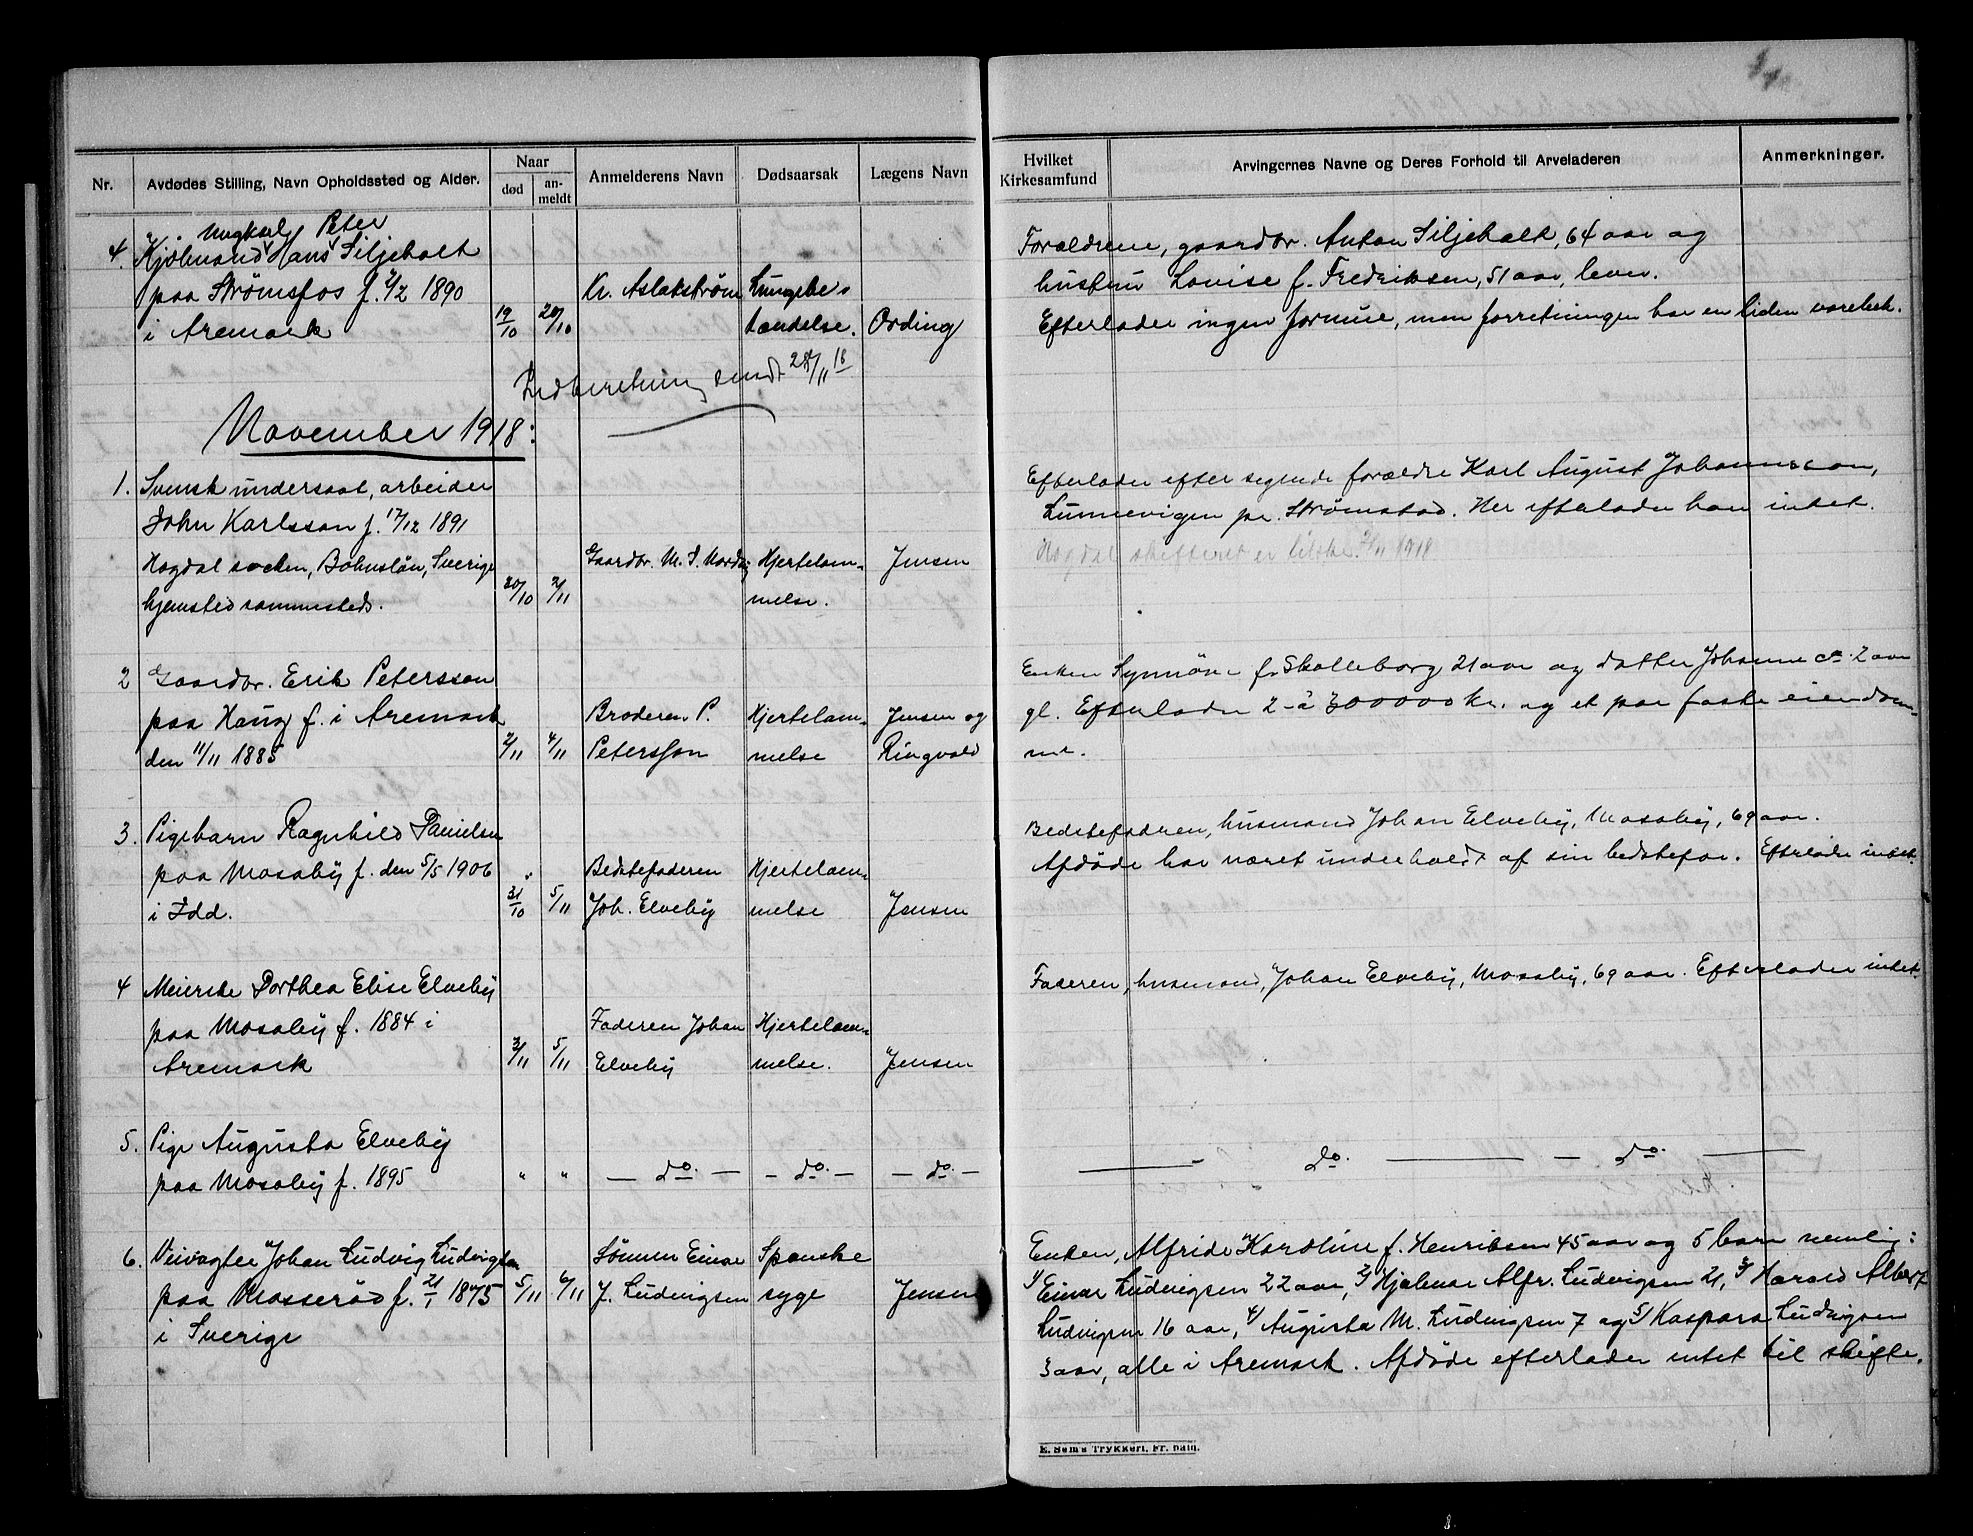 Nr.
Avdødes Stilling, Navn Opholdssted og Alder.
Naar
død
an-
meldt
Anmelderens Navn
Dødsaarsak
Lægens Navn
Hvilket
Kirkesamfund
Arvingernes Navne og Deres Forhold til Arveladeren
Anmerkninger.
Ungkarl Peter
4. Kjøbmand Hans Siljeholt
paa Strømsfos f. 1/2 1890
i Aremark
19/10
20/10
Kr. Aslakstrøm
Lungebe-
tændelse.
Ording
Forældrene, gaardbr. Anton Siljeholt, 64 aar og
hustru Lovise f. Fredriksen, 51 aar, lever.
Efterlader ingen formue, men forretningen har en liden varebeh.
Indberetning sendt 28/11 18
November 1918:
1. Svensk undersaat, arbeider
John Karlsson f. 17/12 1891
Hogdal socken, Bohuslän, Sverige
hjemsted sammesteds.
20/10
2/11
Gaardbr. M. S. Nordby
Hjertelam-
melse.
Jensen
Efterlader efter sigende forældre Karl August Johannesson,
Lunnevigen pr. Strømstad. Her efterlader han intet.
Hogdal skifteret er tilskr. 2/11 1918
2 Gaardbr. Erik Petersson
paa Haug f. i Aremark
den 11/11 1885
2/11
4/11
Broderen P.
Petersson
Hjertelam-
melse
Jensen og
Ringvold
Enken Synnöve f. Skolleborg 21 aar og datter Johanne ca. 2 aar
gl. Efterlader 2 à 300000 kr. og et par faste eiendom-
me.
3. Pigebarn Ragnhild Danielsen
paa Mosaby f. den 5/5 1906
i Idd.
31/10
5/11
Bedstefaderen
Joh. Elveby
Hjertelam-
melse
Jensen
Bedstefaderen, husmand Johan Elveby, Mosaby, 69 aar.
Afdöde har været underholdt af sin bedstefar. Efterlader intet.
4 Meierske Dorthea Elise Elveby
paa Mosaby f. 1884 i
Aremark
3/11
5/11
Faderen Johan
Elveby
Hjertelam-
melse.
Jensen
Faderen, husmand, Johan Elveby, Mosaby, 69 aar. Efterlader intet.
5. Pige Augusta Elveby
paa Mosaby f. 1895
" " — do. — — do. — — do. —
— do. — — do. —
6. Veivogter Johan Ludvig Ludvigsen
paa Mosserød f. 21/1 1875
i Sverige
5/11
6/11
Sönnen Einar
J. Ludvigsen
Spanske
syge
Jensen
Enken, Alfride Karoline f. Henriksen 45 aar og 5 barn nemlig:
1/ Einar Ludvigsen 22 aar, 2/ Hjalmar Alfr. Ludvigsen 21, 3/ Harald Albert
Ludvigsen 16 aar, 4/ Augusta M. Ludvigsen 7 og 5/ Kaspara Ludvigsen
3 aar, alle i Aremark. Afdöde efterlader intet til skifte.
E. Sem's Trykkeri, Fr.hald.
8.